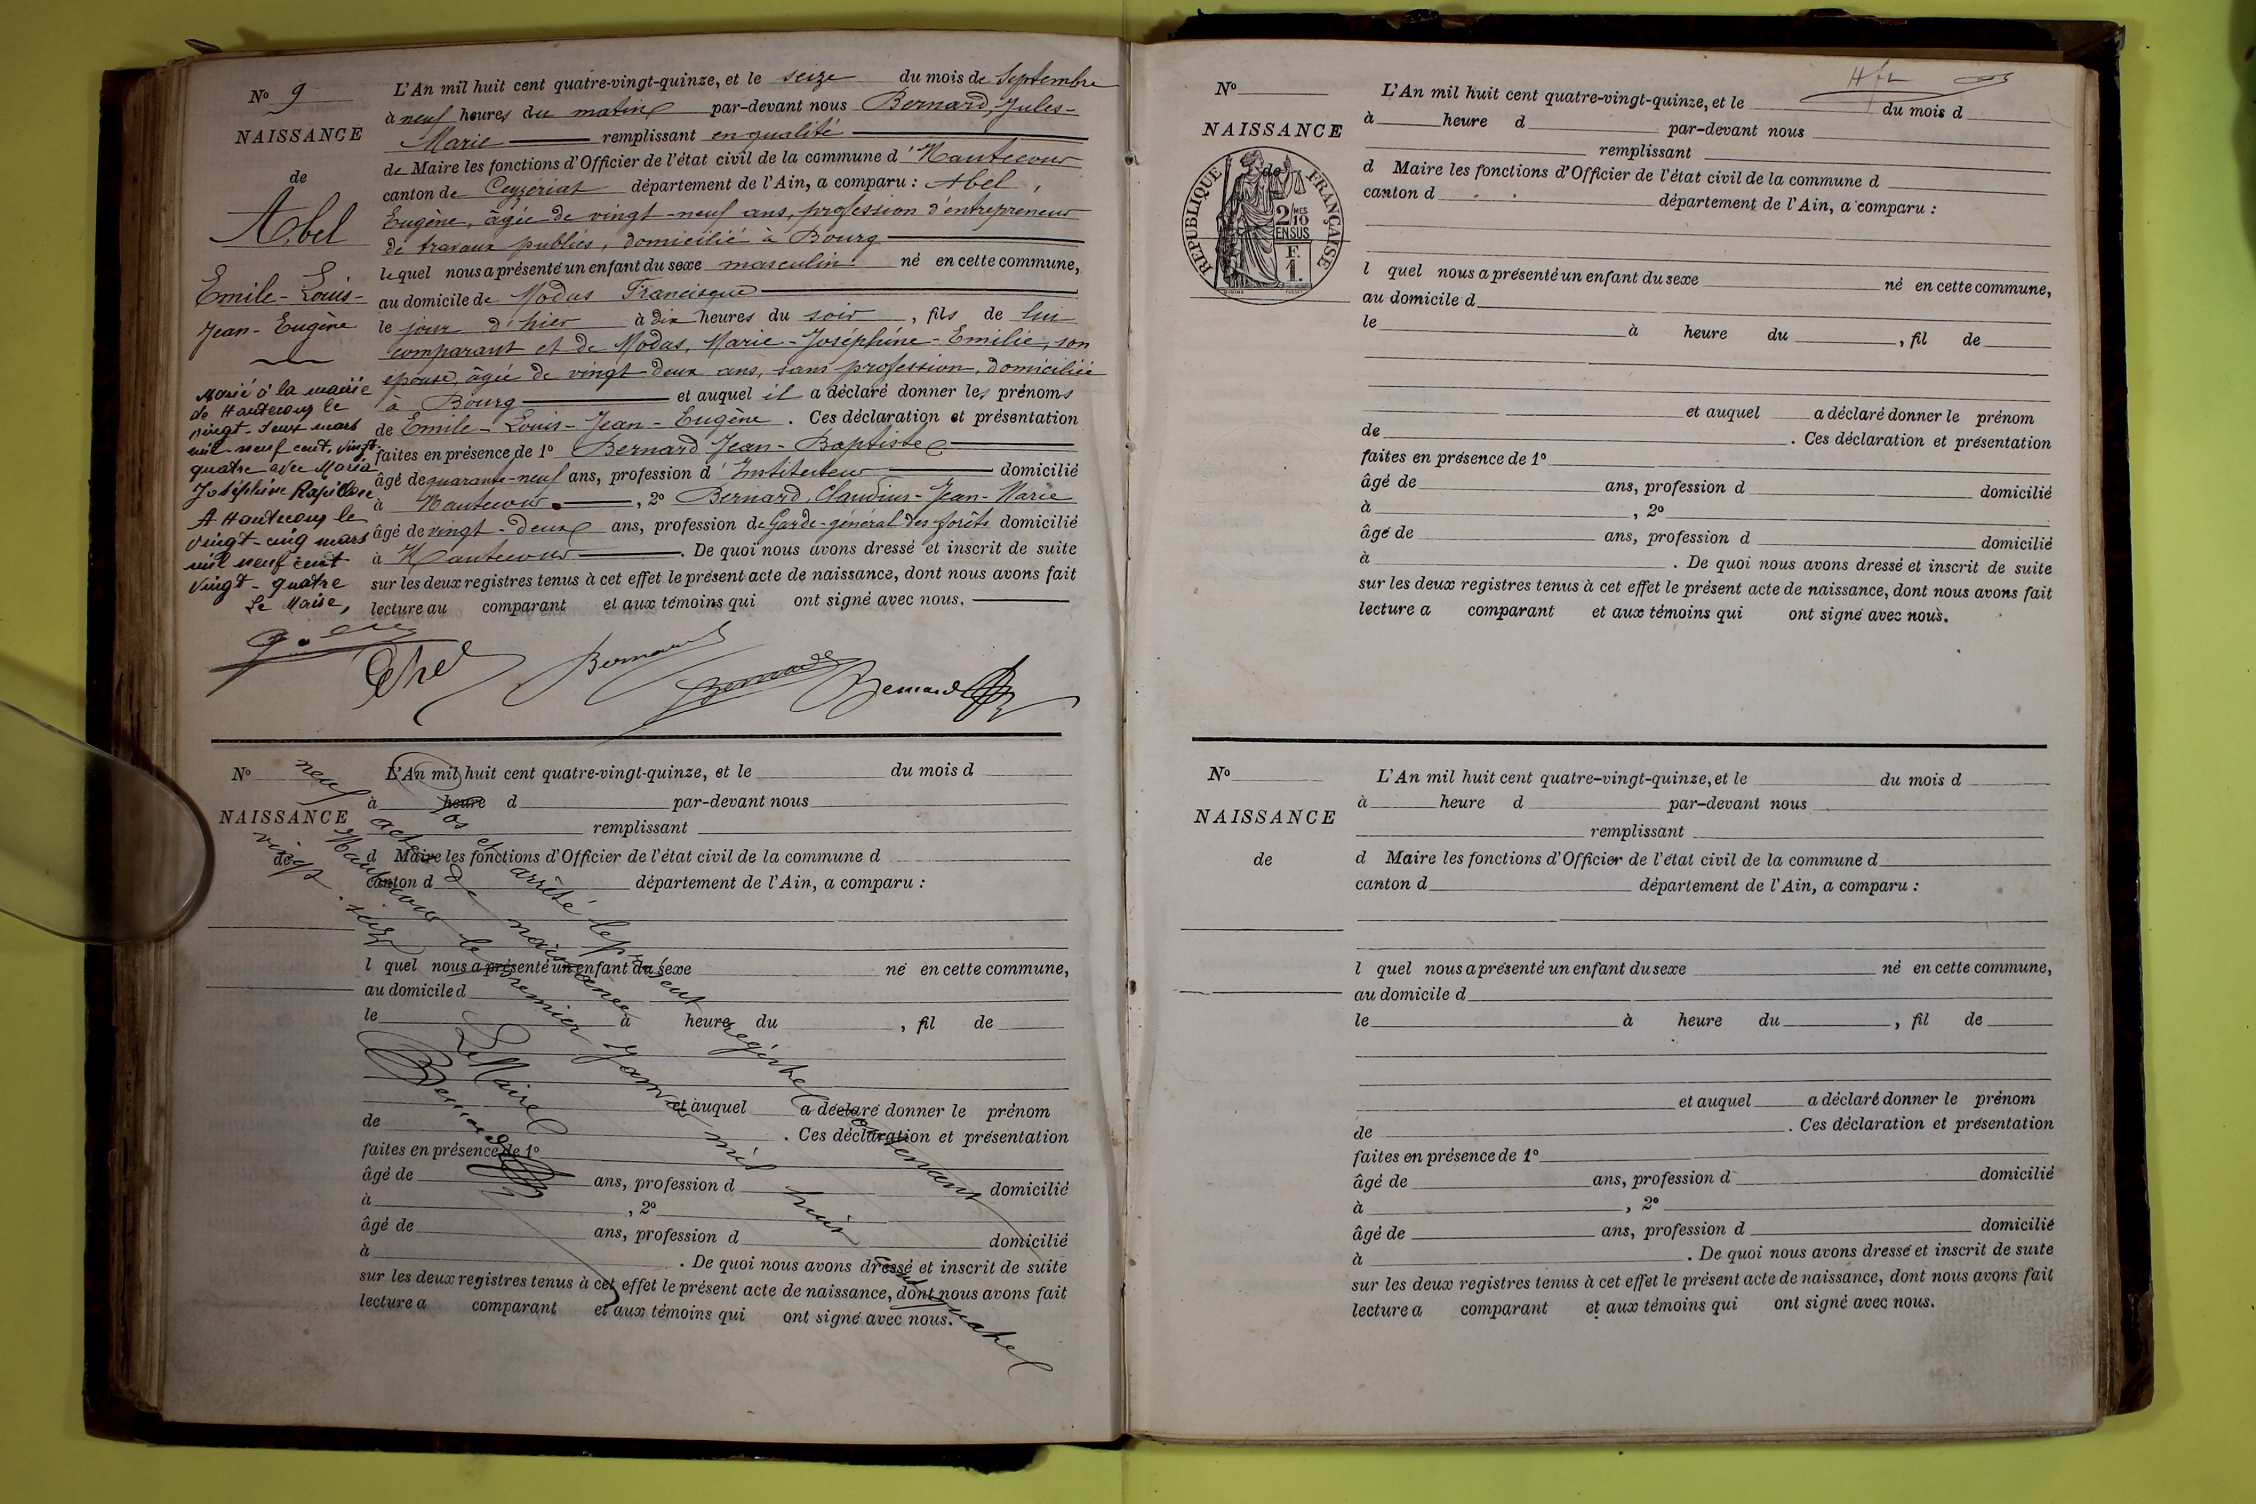 N° 9
NAISSANCE
de
Abel
Emile - Louis -
Jean - Eugène
Marié à la mairie
de Hautecour le
vingt-deux mars
mil neuf cent vingt-
quatre avec Maria
Joséphine
A Hautecour le
vingt-cinq mars
mil neuf cent
vingt-quatre
Le Maire,
L'An mil huit cent quatre-vingt-quinze, et le seize du mois de Septembre
à neuf heures du matin par-devant nous Bernard, Jules-
Marie remplissant en qualité
de Maire les fonctions d'Officier de l'état civil de la commune d'Hautecour
canton de Ceyzériat département de l'Ain, a comparu : Abel,
Eugène, âgée de vingt-neuf ans, profession d'entrepreneur
de travaux publics, domicilié à Bourg
lequel nous a présenté un enfant du sexe masculin né en cette commune,
au domicile de Modas Francisque
le jour d'hier à dix heures du soir, fils de lui
comparant et de Modas, Marie-Joséphine-Emilie, son
épouse, âgée de vingt-deux ans, sans profession, domiciliée
à Bourg et auquel il a déclaré donner les prénoms
de Emile - Louis - Jean - Eugène. Ces déclaration et présentation
faites en présence de 1° Bernard Jean-Baptiste
âgé de quarante-neuf ans, profession d'Instituteur domicilié
à Hautecour, 2° Bernard, Claudius-Jean-Marie
âgé de vingt-deux ans, profession de Garde-général des forêts domicilié
à Hautecour. De quoi nous avons dressé et inscrit de suite
sur les deux registres tenus à cet effet le présent acte de naissance, dont nous avons fait
lecture au comparant et aux témoins qui ont signé avec nous.
Abel Bernard Bernard Bernard
N°
NAISSANCE
de
L'An mil huit cent quatre-vingt-quinze, et le du mois d
à heure d par-devant nous
remplissant
d Maire les fonctions d'Officier de l'état civil de la commune d
canton d département de l'Ain, a comparu :
l quel nous a présenté un enfant du sexe né en cette commune,
au domicile d
le à heure du , fil de
et auquel a déclaré donner le prénom
de . Ces déclaration et présentation
faites en présence de 1°
âgé de ans, profession d domicilié
à , 2°
âgé de ans, profession d domicilié
à . De quoi nous avons dressé et inscrit de suite
sur les deux registres tenus à cet effet le présent acte de naissance, dont nous avons fait
lecture a comparant et aux témoins qui ont signé avec nous.
Clos et arrêté le présent registre contenant
neuf actes de naissance
Hautecour le premier Janvier mil huit cent quatre
vingt-seize
Le Maire
Bernard
N°
NAISSANCE
de
RÉPUBLIQUE FRANÇAISE
2/10 MES
EN SUS
F.
1.
L'An mil huit cent quatre-vingt-quinze, et le du mois d
à heure d par-devant nous
remplissant
d Maire les fonctions d'Officier de l'état civil de la commune d
canton d département de l'Ain, a comparu :
l quel nous a présenté un enfant du sexe né en cette commune,
au domicile d
le à heure du , fil de
et auquel a déclaré donner le prénom
de . Ces déclaration et présentation
faites en présence de 1°
âgé de ans, profession d domicilié
à , 2°
âgé de ans, profession d domicilié
à . De quoi nous avons dressé et inscrit de suite
sur les deux registres tenus à cet effet le présent acte de naissance, dont nous avons fait
lecture a comparant et aux témoins qui ont signé avec nous.
N°
NAISSANCE
de
L'An mil huit cent quatre-vingt-quinze, et le du mois d
à heure d par-devant nous
remplissant
d Maire les fonctions d'Officier de l'état civil de la commune d
canton d département de l'Ain, a comparu :
l quel nous a présenté un enfant du sexe né en cette commune,
au domicile d
le à heure du , fil de
et auquel a déclaré donner le prénom
de . Ces déclaration et présentation
faites en présence de 1°
âgé de ans, profession d domicilié
à , 2°
âgé de ans, profession d domicilié
à . De quoi nous avons dressé et inscrit de suite
sur les deux registres tenus à cet effet le présent acte de naissance, dont nous avons fait
lecture a comparant et aux témoins qui ont signé avec nous.